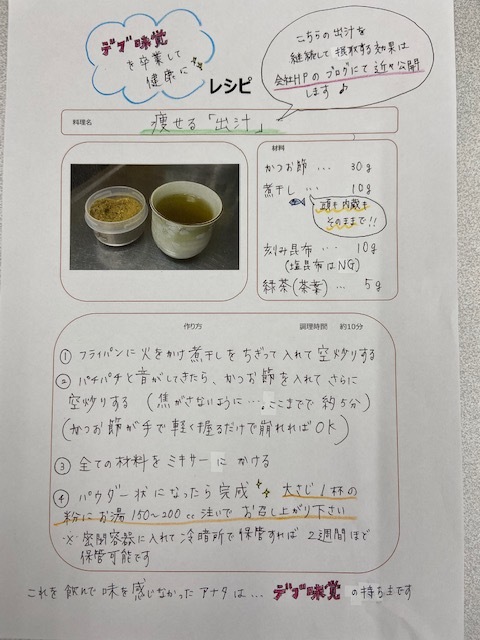 デブ味覚
を卒業して
健康に
レシピ
こちらの出汁を
継続して摂取する効果は
会社HPのブログにて近々公開
します♪
料理名 痩せる「出汁」
材料
かつお節 … 30g
煮干し … 10g
頭も内蔵も
そのままで!!
刻み昆布 … 10g
(塩昆布はNG)
緑茶(茶葉) … 5g
作り方 調理時間 約10分
① フライパンに火をかけ煮干しをちぎって入れて空炒りする
② パチパチと音がしてきたら、かつお節を入れてさらに
空炒りする (焦がさないように…ここまでで約5分)
(かつお節が手で軽く握るだけで崩れればOK)
③ 全ての材料をミキサーにかける
④ パウダー状になったら完成 大さじ1杯の
粉にお湯150〜200cc注いでお召し上がり下さい
※ 密閉容器に入れて冷暗所で保管すれば2週間まで
保管可能です
これを飲んで味を感じなかったアナタは… デブ味覚の持ち主です